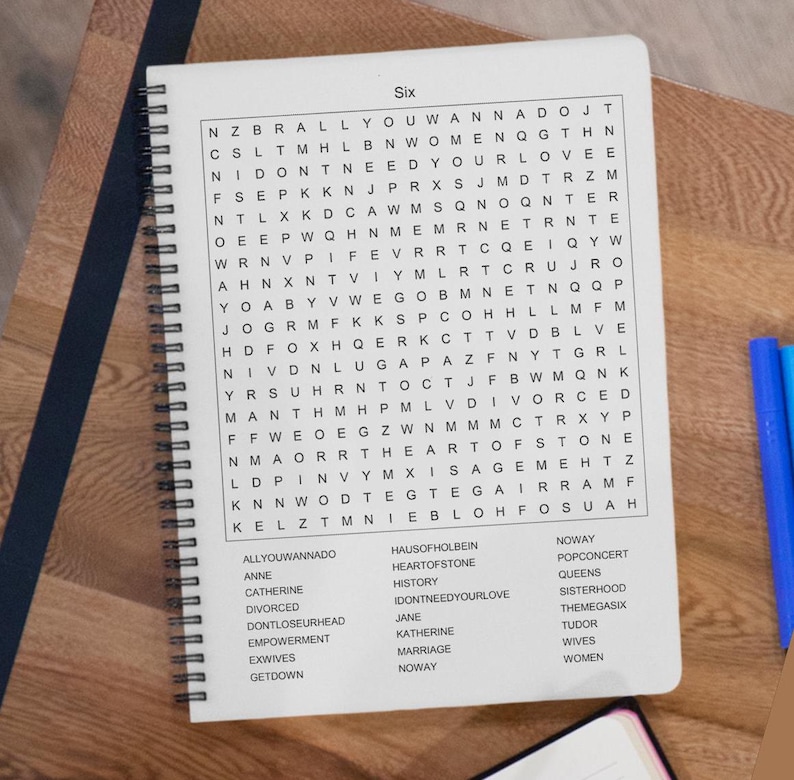 Six
N Z B R A L L Y O U W A N N A D O J T
C S L T M H L B N W O M E N Q G T H N
N I D O N T N E E D Y O U R L O V E E
F S E P K K N J P R X S J M D T R Z M
N T L X K D C A W M S Q N O Q N T E R
O E E P W Q H N M E M R N E T R N T E
W R N V P I F E V R R T C Q E I Q Y W
A H N X N T V I Y M L R T C R U J R O
Y O A B Y V W E G O B M N E T N Q Q P
J O G R M F K K S P C O H H L L M F M
H D F O X H Q E R K C T T V D B L V E
N I V D N L U G A P A Z F N Y T G R L
Y R S U H R N T O C T J F B W M Q N K
M A N T H M H P M L V D I V O R C E D
F F W E O E G Z W N M M M C T R X Y P
N M A O R R T H E A R T O F S T O N E
L D P I N V Y M X I S A G E M E H T Z
K N N W O D T E G T E G A I R R A M F
K E L Z T M N I E B L O H F O S U A H
ALLYOUWANNADO
ANNE
CATHERINE
DIVORCED
DONTLOSEURHEAD
EMPOWERMENT
EXWIVES
GETDOWN
HAUSOFHOLBEIN
HEARTOFSTONE
HISTORY
IDONTNEEDYOURLOVE
JANE
KATHERINE
MARRIAGE
NOWAY
NOWAY
POPCONCERT
QUEENS
SISTERHOOD
THEMEGASIX
TUDOR
WIVES
WOMEN